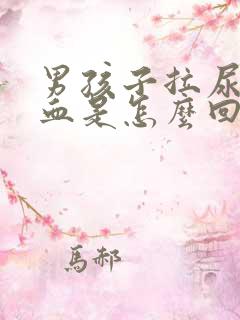 男孩子拉尿
血是怎麼回
馬郝